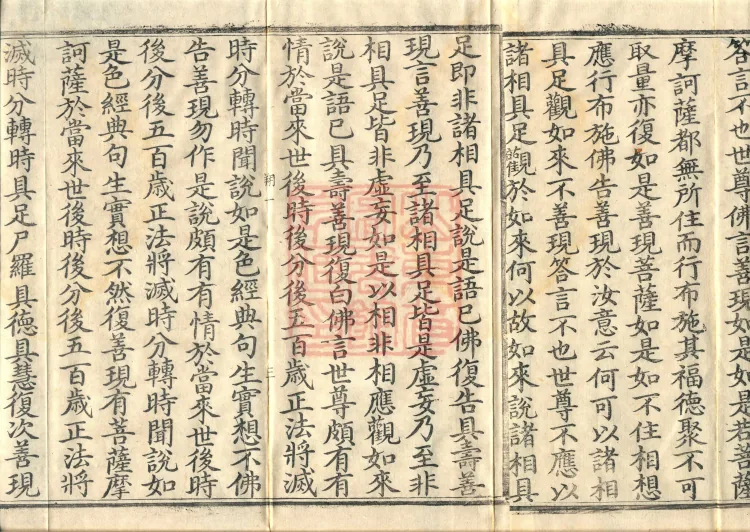 答言不也世尊佛言善現如是如是若菩薩
摩訶薩都無所住而行布施其福德聚不可
取量亦復如是善現菩薩如是如不住相想
應行布施佛告善現於汝意云何可以諸相
具足觀如來不善現答言不也世尊不應以
諸相具足觀於如來何以故如來說諸相具
足即非諸相具足說是語已佛復告具壽善
現言善現乃至諸相具足皆是虛妄乃至非
相具足皆非虛妄如是以相非相應觀如來
說是語已具壽善現復白佛言世尊頗有有
情於當來世後時後分後五百歲正法將滅
時分轉時聞說如是色經典句生實想不佛
告善現勿作是說頗有有情於當來世後時
後分後五百歲正法將滅時分轉時聞說如
是色經典句生實想不然復善現有菩薩摩
訶薩於當來世後時後分後五百歲正法將
滅時分轉時具足尸羅具德具慧復次善現
三